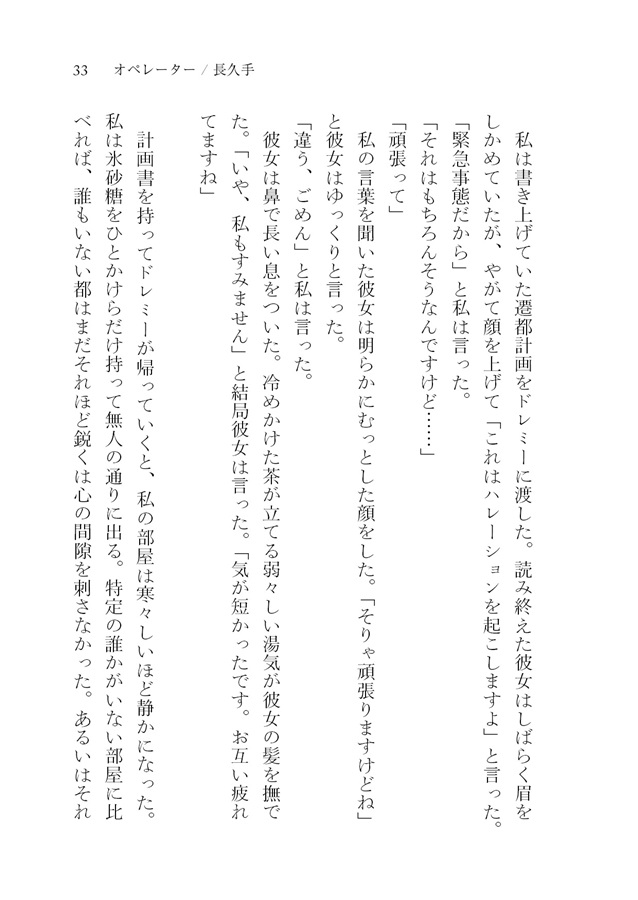 33　オペレーター / 長久手
　私は書き上げていた遷都計画をドレミーに渡した。読み終えた彼女はしばらく眉を
しかめていたが、やがて顔を上げて「これはハレーションを起こしますよ」と言った。
「緊急事態だから」と私は言った。
「それはもちろんそうなんですけど……」
「頑張って」
　私の言葉を聞いた彼女は明らかにむっとした顔をした。「そりゃ頑張りますけどね」
と彼女はゆっくりと言った。
「違う、ごめん」と私は言った。
　彼女は鼻で長い息をついた。冷めかけた茶が立てる弱々しい湯気が彼女の髪を撫で
た。「いや、私もすみません」と結局彼女は言った。「気が短かったです。お互い疲れ
てますね」
　計画書を持ってドレミーが帰っていくと、私の部屋は寒々しいほど静かになった。
私は氷砂糖をひとかけらだけ持って無人の通りに出る。特定の誰かがいない部屋に比
べれば、誰もいない都はまだそれほど鋭くは心の間隙を刺さなかった。あるいはそれ